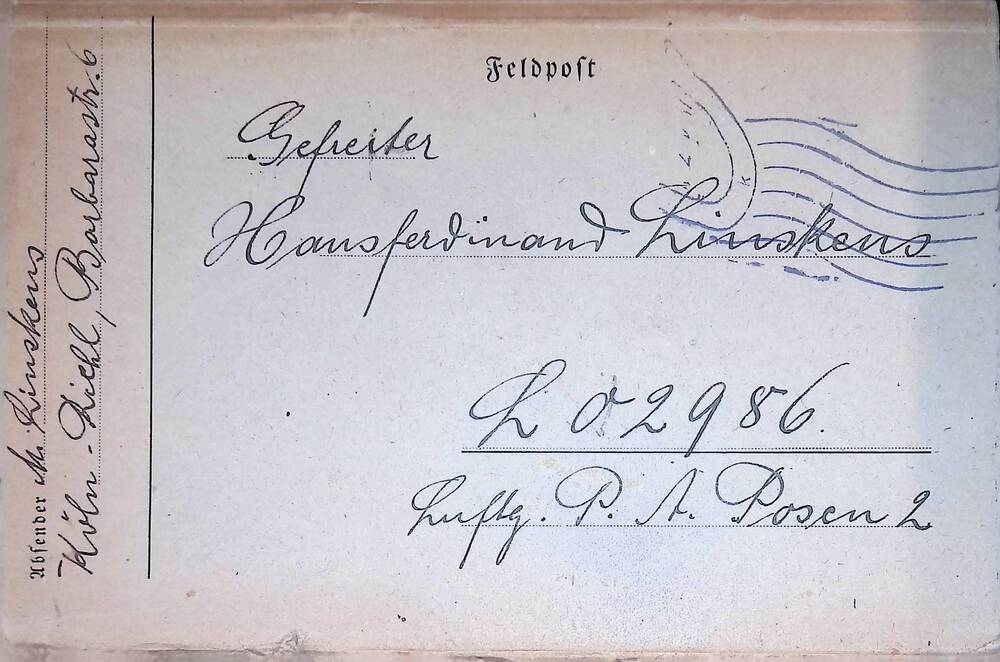 Feldpost
Gefreiter
Hansferdinand Linskens
L 02986.
Luftg. P. A. Posen 2
Absender M. Linskens
Köln-Riehl, Barbarastr. 6